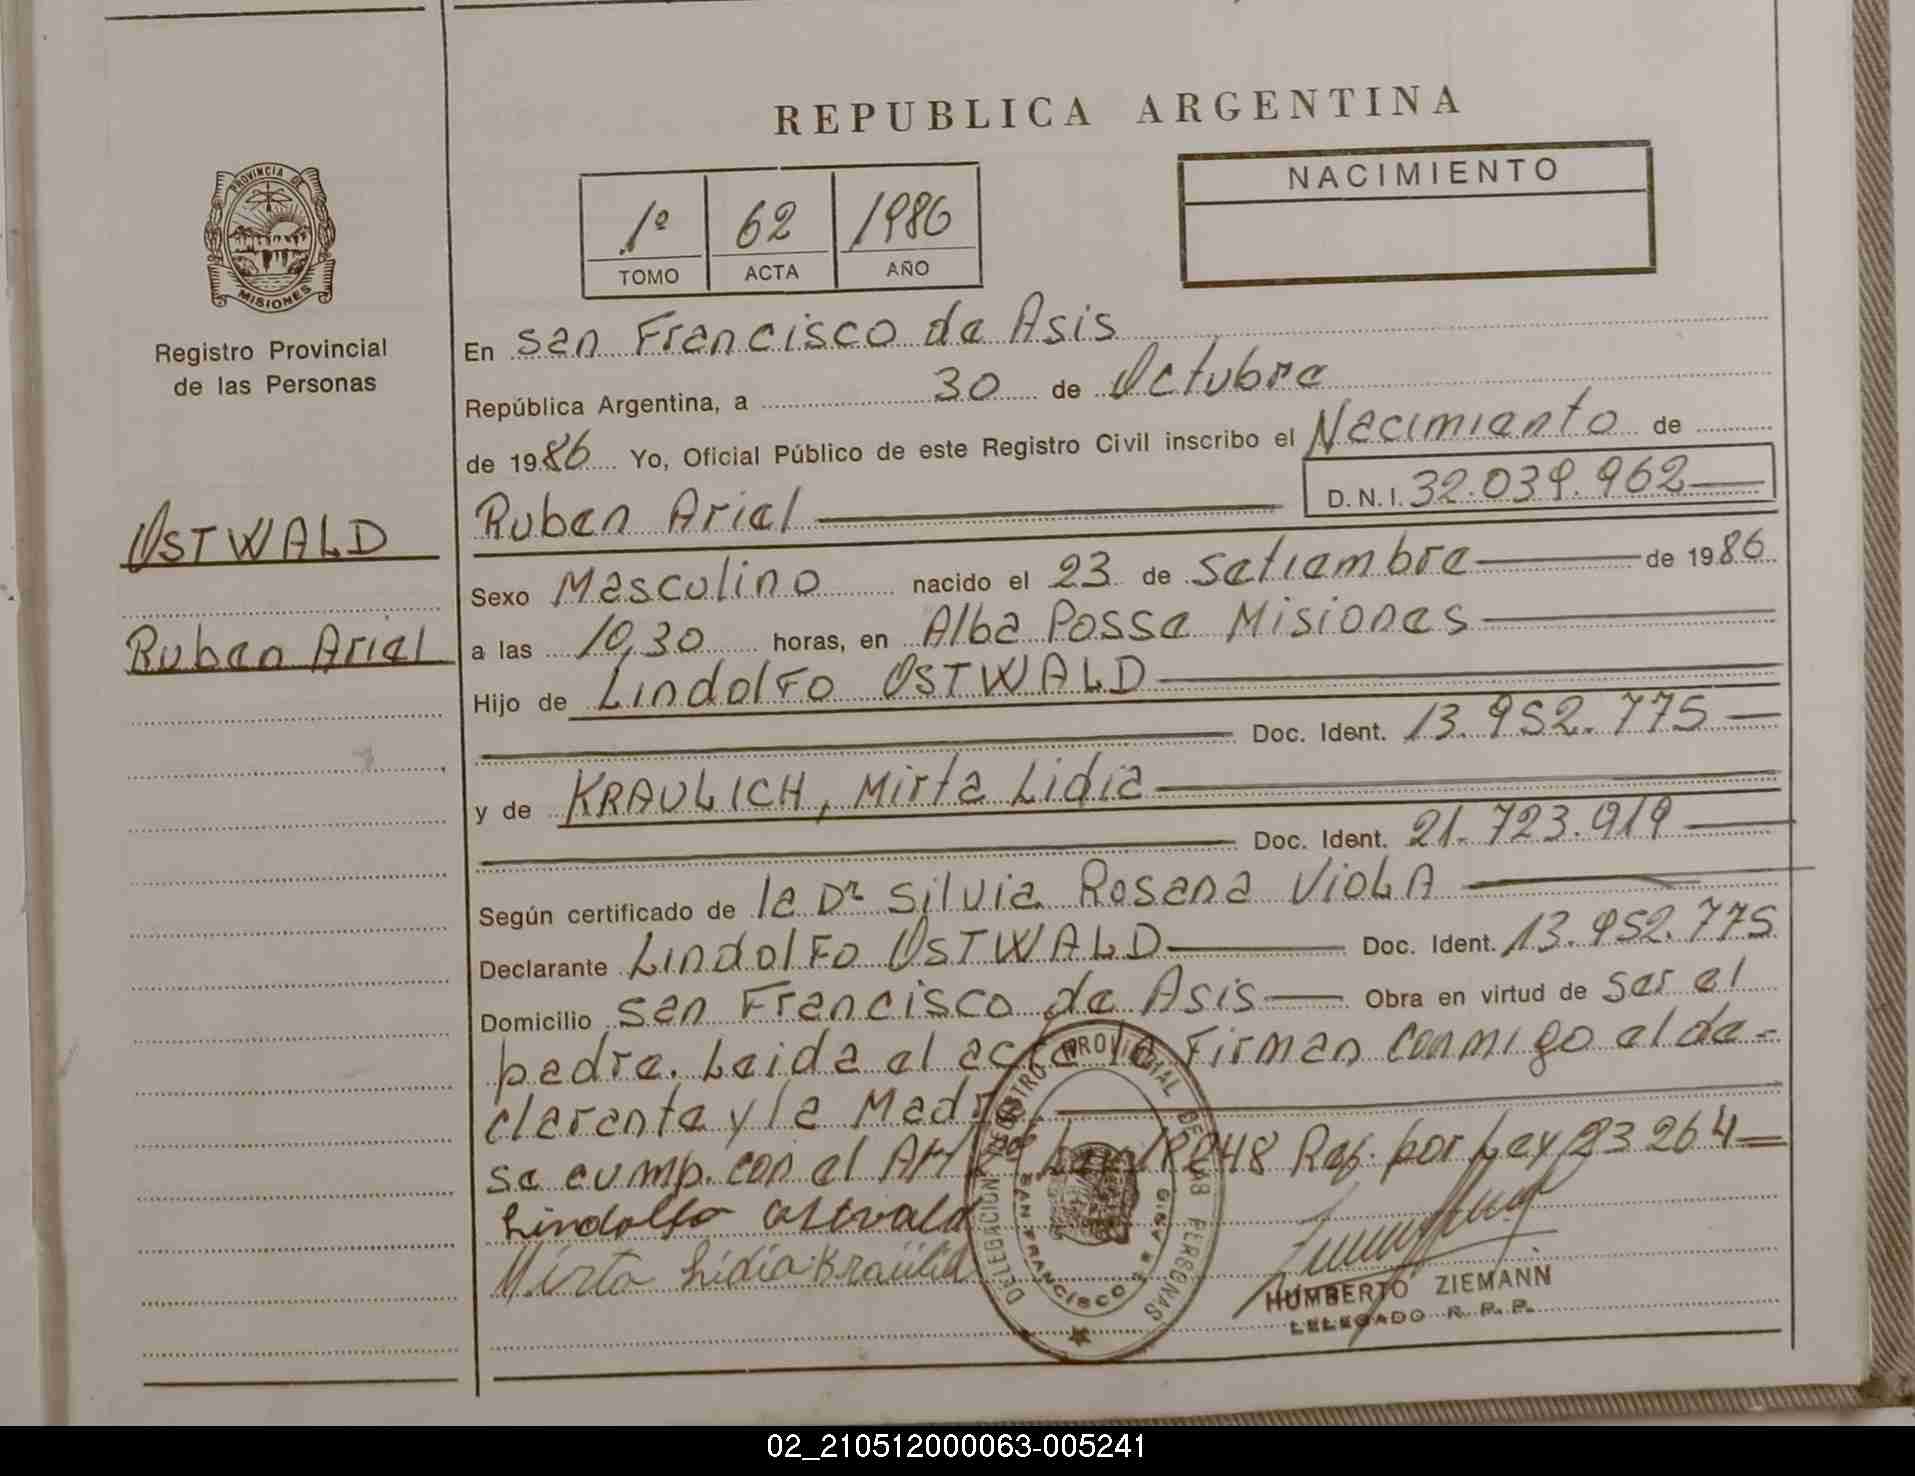 REPUBLICA ARGENTINA
PROVINCIA DE
MISIONES
Registro Provincial
de las Personas
OSTWALD
Ruben Ariel
1º 62 1986
TOMO ACTA AÑO
NACIMIENTO
En San Francisco de Asis
República Argentina, a 30 de Octubre
de 1986 Yo, Oficial Público de este Registro Civil inscribo el Nacimiento de
Ruben Ariel D.N.I. 32.039.962
Sexo Masculino nacido el 23 de Setiembre de 1986
a las 10,30 horas, en Alba Posse Misiones
Hijo de Lindolfo OSTWALD
Doc. Ident. 13.952.775
y de KRAULICH, Mirta Lidia
Doc. Ident. 21.723.919
Según certificado de la Dr Silvia Rosana VIOLA
Declarante Lindolfo OSTWALD Doc. Ident. 13.952.775
Domicilio San Francisco de Asis Obra en virtud de ser el
padre. Leida el acta la Firman conmigo el de=
clarante y la Madre.
se cump. con el Art 18248 Ref. por Ley 23264
Lindolfo Ostwald
Mirta Lidia
DELEGACION REGISTRO PROVINCIAL DE LAS PERSONAS
SAN FRANCISCO
HUMBERTO ZIEMANN
DELEGADO R. P. P.
02_210512000063-005241